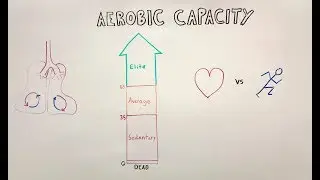 AEROBIC CAPACITY
Elite
Average
Sedentary
vs
0
DEAD